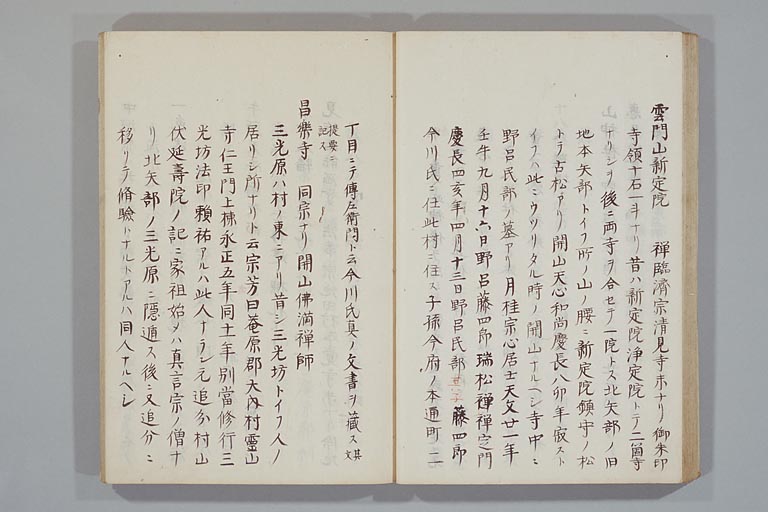 雲門山新定院　禅臨済宗清見寺末ナリ御朱印
寺領十石一斗ナリ昔ハ新定院浄定院トテ二箇寺
ナリシヲ後ニ両寺ヲ合セテ一院トス北矢部ノ旧
地本矢部トイフ所ノ山ノ腰ニ新定院鎮守ノ松
トテ古松アリ開山天心和尚慶長八卯年寂スト
イフハ此ニウツリタル時ノ開山ナルヘシ寺中ニ
野呂民部ノ墓アリ月桂宗心居士天文廿一年
壬午九月十六日野呂藤四郎瑞松禅禅定門
慶長四亥年四月十三日野呂民部其子藤四郎
今川氏ニ仕此村ニ住ス子孫今府ノ本通町二
丁目ニテ傳左衛門ト云今川氏真ノ文書ヲ蔵ス其文
提要ニ記ス
昌樂寺　同宗ナリ開山佛満禅師
三光原ハ村ノ東ニアリ昔シ三光坊トイフ人ノ
居リシ所ナリト云宗芳曰菴原郡大内村霊山
寺仁王門上梯永正五年同十一年別當修行三
光坊法印頼祐アルハ此人ナラン元追分村山
伏延壽院ノ記ニ家祖始メハ真言宗ノ僧ナ
リ北矢部ノ三光原ニ隠遁ス後ニ又追分ニ
移リテ脩驗トナルトアルハ同人ナルヘシ